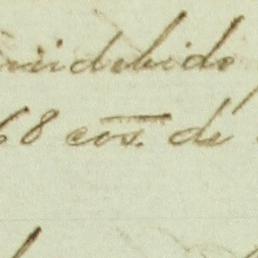 indebido
68 cos. de